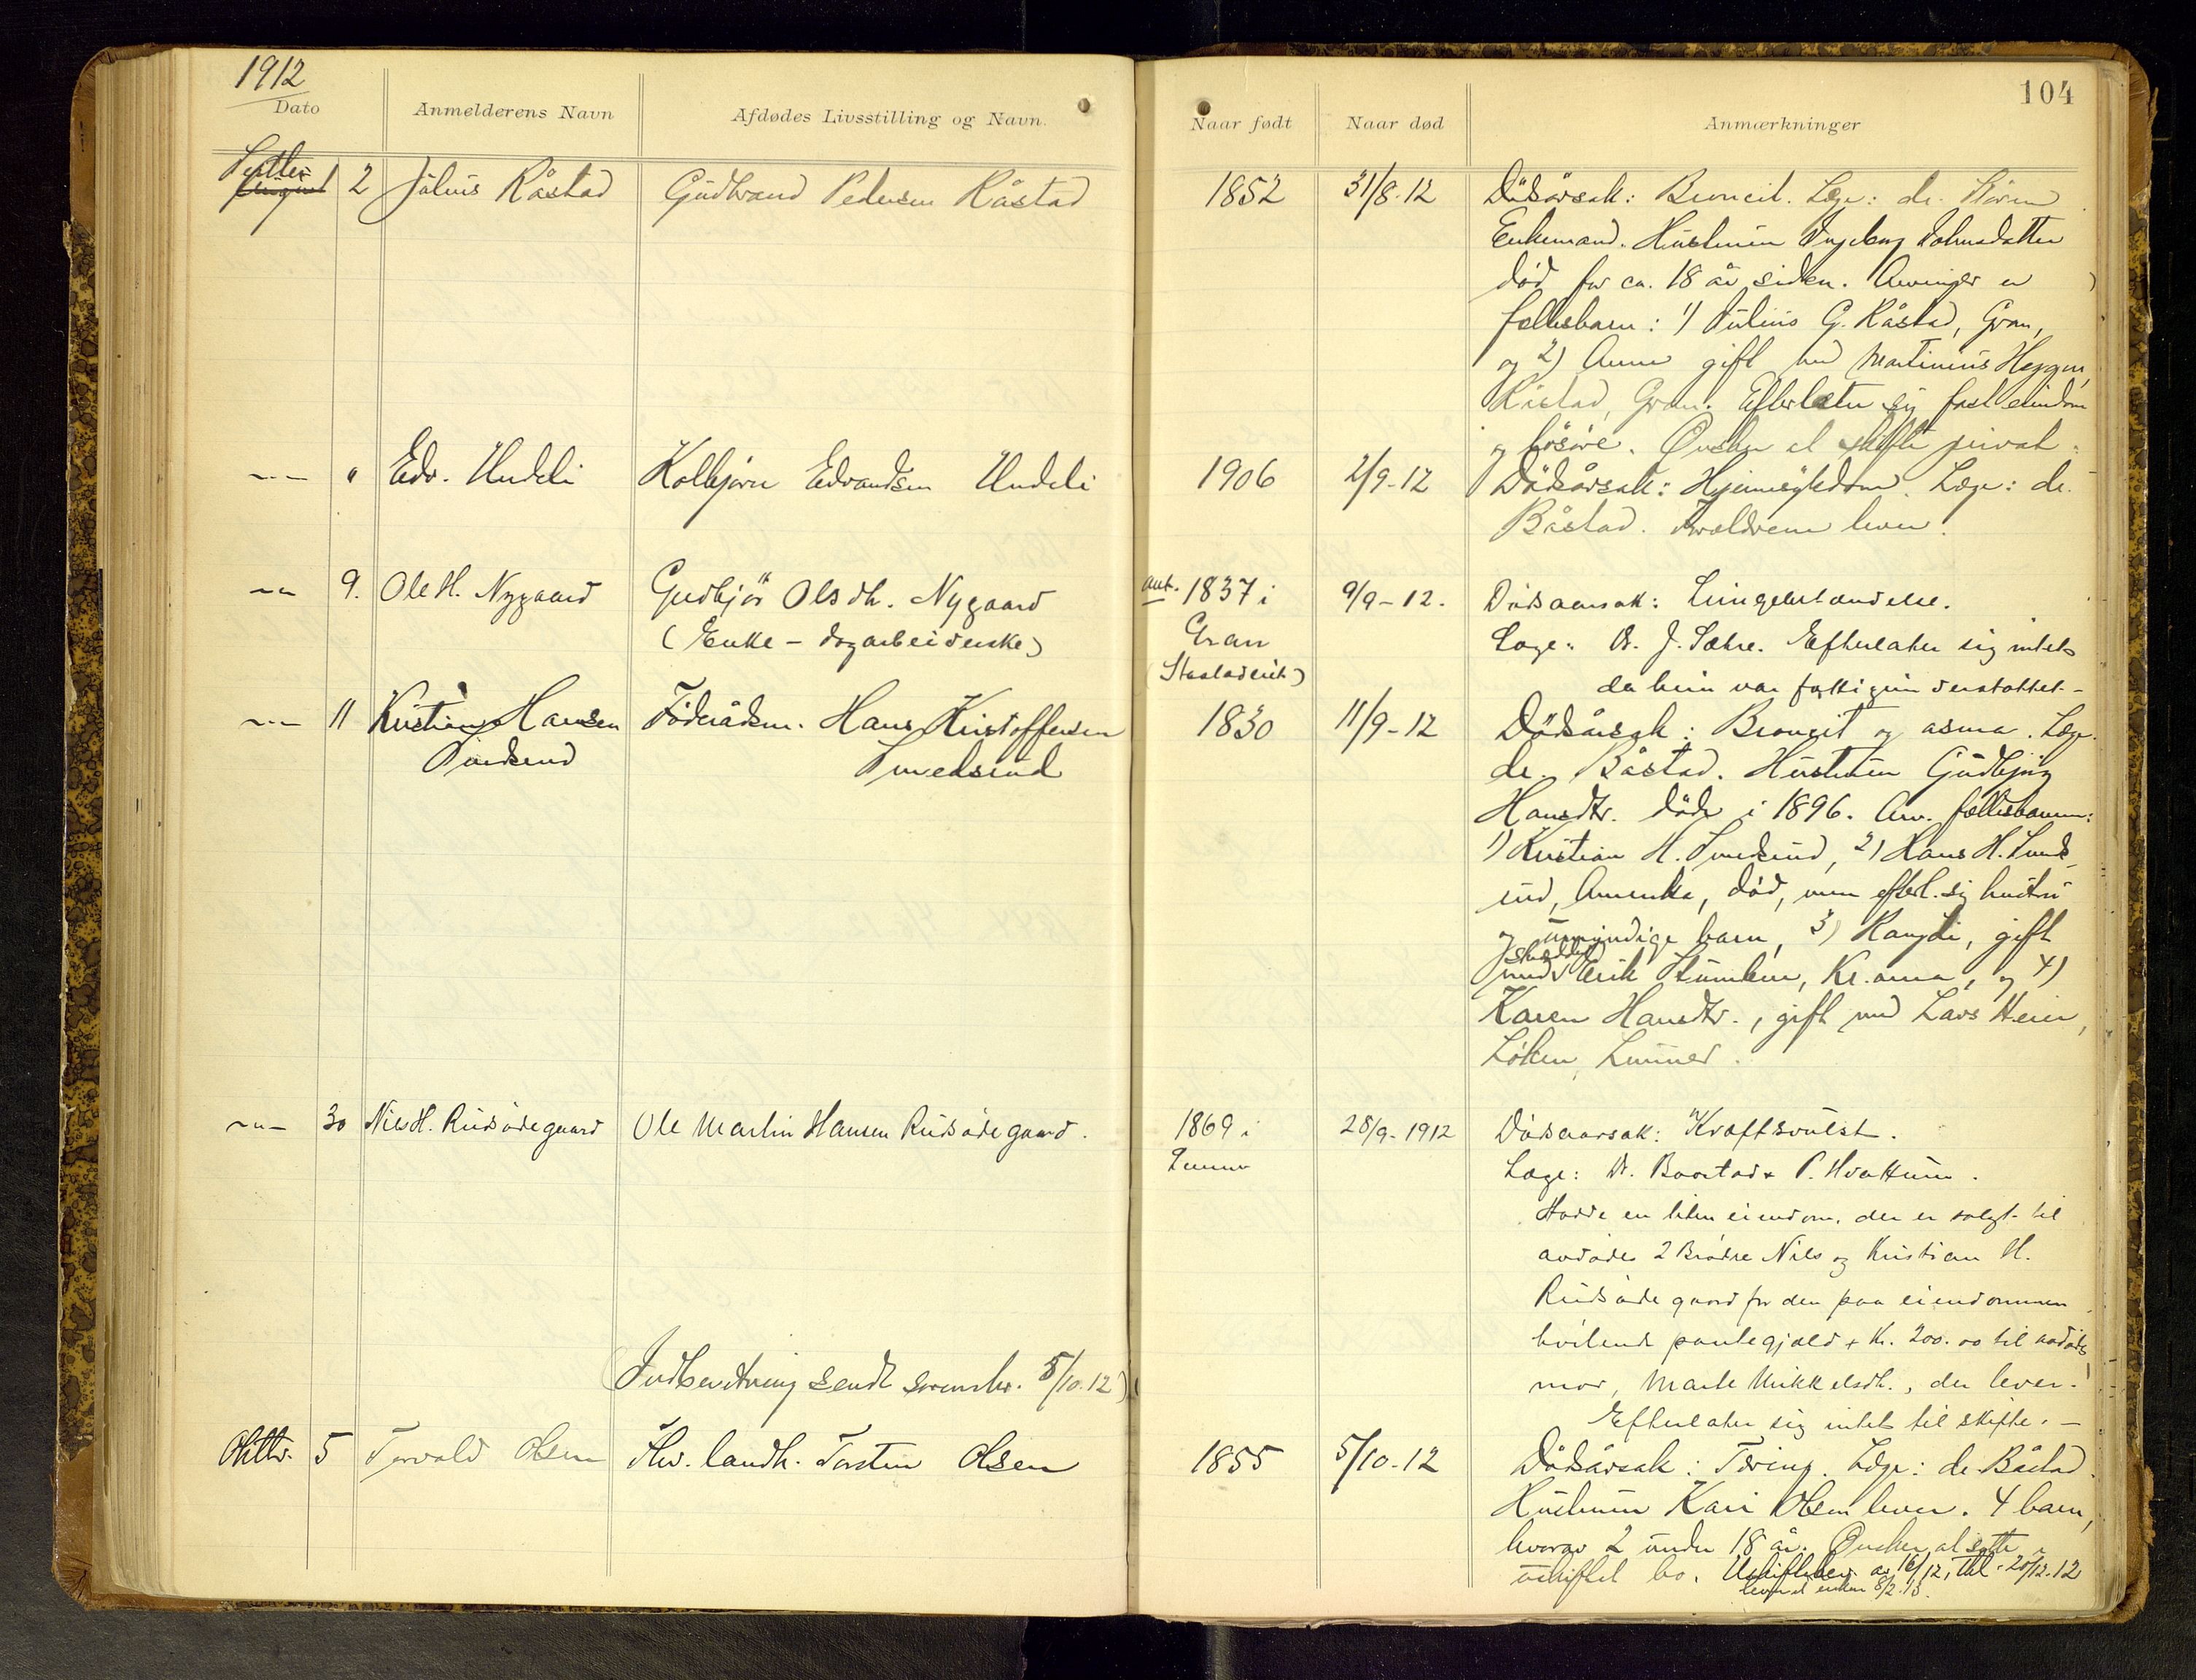 1912
104
Dato
Anmelderens Navn
Afdødes Livsstilling og Navn.
Naar født
Naar død
Anmærkninger
Septbr. 2 Julius Råstad
Gudbrand Pedersen Råstad
1852
31/8-12
Dödsårsak: Broncit. Læge: dr.
Enkemand. Hustruen Ingeborg
död for ca. 18 år siden. Arvinger er
fællesbarn: 1) Julius G. Råstad, Gran,
og 2) Anne gift med Martinius Heggen,
Råstad, Gran. Efterlater sig fast eiendom
og lösöre. Önsker at skifte privat.
-"- " Edv. Undeli
Kolbjörn Edvardsen Undeli
1906
2/9-12
Dödsårsak: Hjernesygdom. Læge: dr.
Båstad. Forældrene lever.
-"- 9. Ole H. Nygaard
Gudbjör Olsdtr. Nygaard
(Enke - dagarbeiderske)
ant. 1837 i
Gran
9/9-12.
Dödsaarsak: Lungebetændelse.
Læge: Dr. J. Sæhre. Efterlater sig intet
da hun var fattigunderstøttet. -
-"- 11 Kristian Hansen
Smedsrud
Föderådsm. Hans Kristoffersen
Smedsrud
1830
11/9-12
Dödsårsak: Broncit og asma. Læge
dr. Båstad. Hustruen Gudbjörg
Hansdtr. döde i 1896. Arv. fællesbarn:
1) Kristian H. Smedsrud, 2) Hans H. Smeds-
rud, Amerika, död, men efterl. sig hustru
og umyndige barn, 3) Rangdi, gift
med Erik, Kr.ania, og 4)
Karen Hansdtr., gift med Lars Heier,
Löken, Lunner.
-"- 30 Nils H. Rudsødegaard
Ole Martin Hansen Rudsødegaard.
1869 i
Lunner
28/9-1912
Dödsaarsak: Kræftsvulst.
Læge: Dr. Baastad & P. Hvattum.
Hadde en liten eiendom, der er solgt til
avdødes 2 Brødre Nils og Kristian H.
Rudsødegaard for den paa eiendommen
hvilende pantegjæld + Kr. 200.00 til avdødes
mor, Marte Mikkelsdtr., der lever.
Efterlater sig intet til skifte. -
(Indberetning sendt sorenskr. 5/10.12)
Oktbr. 5 Torvald Olsen
Fhv. landh. Torsten Olsen
1855
5/10-12
Dödsårsak: Tæring. Læge: dr. Båstad.
Hustruen Kari Olsen lever. 4 barn,
hvorav 2 under 18 år. Önsker at sitte i
uskiftet bo. Uskiftebev. av 16/12, tkl. 20/12.12
levert enken 8/2.13.